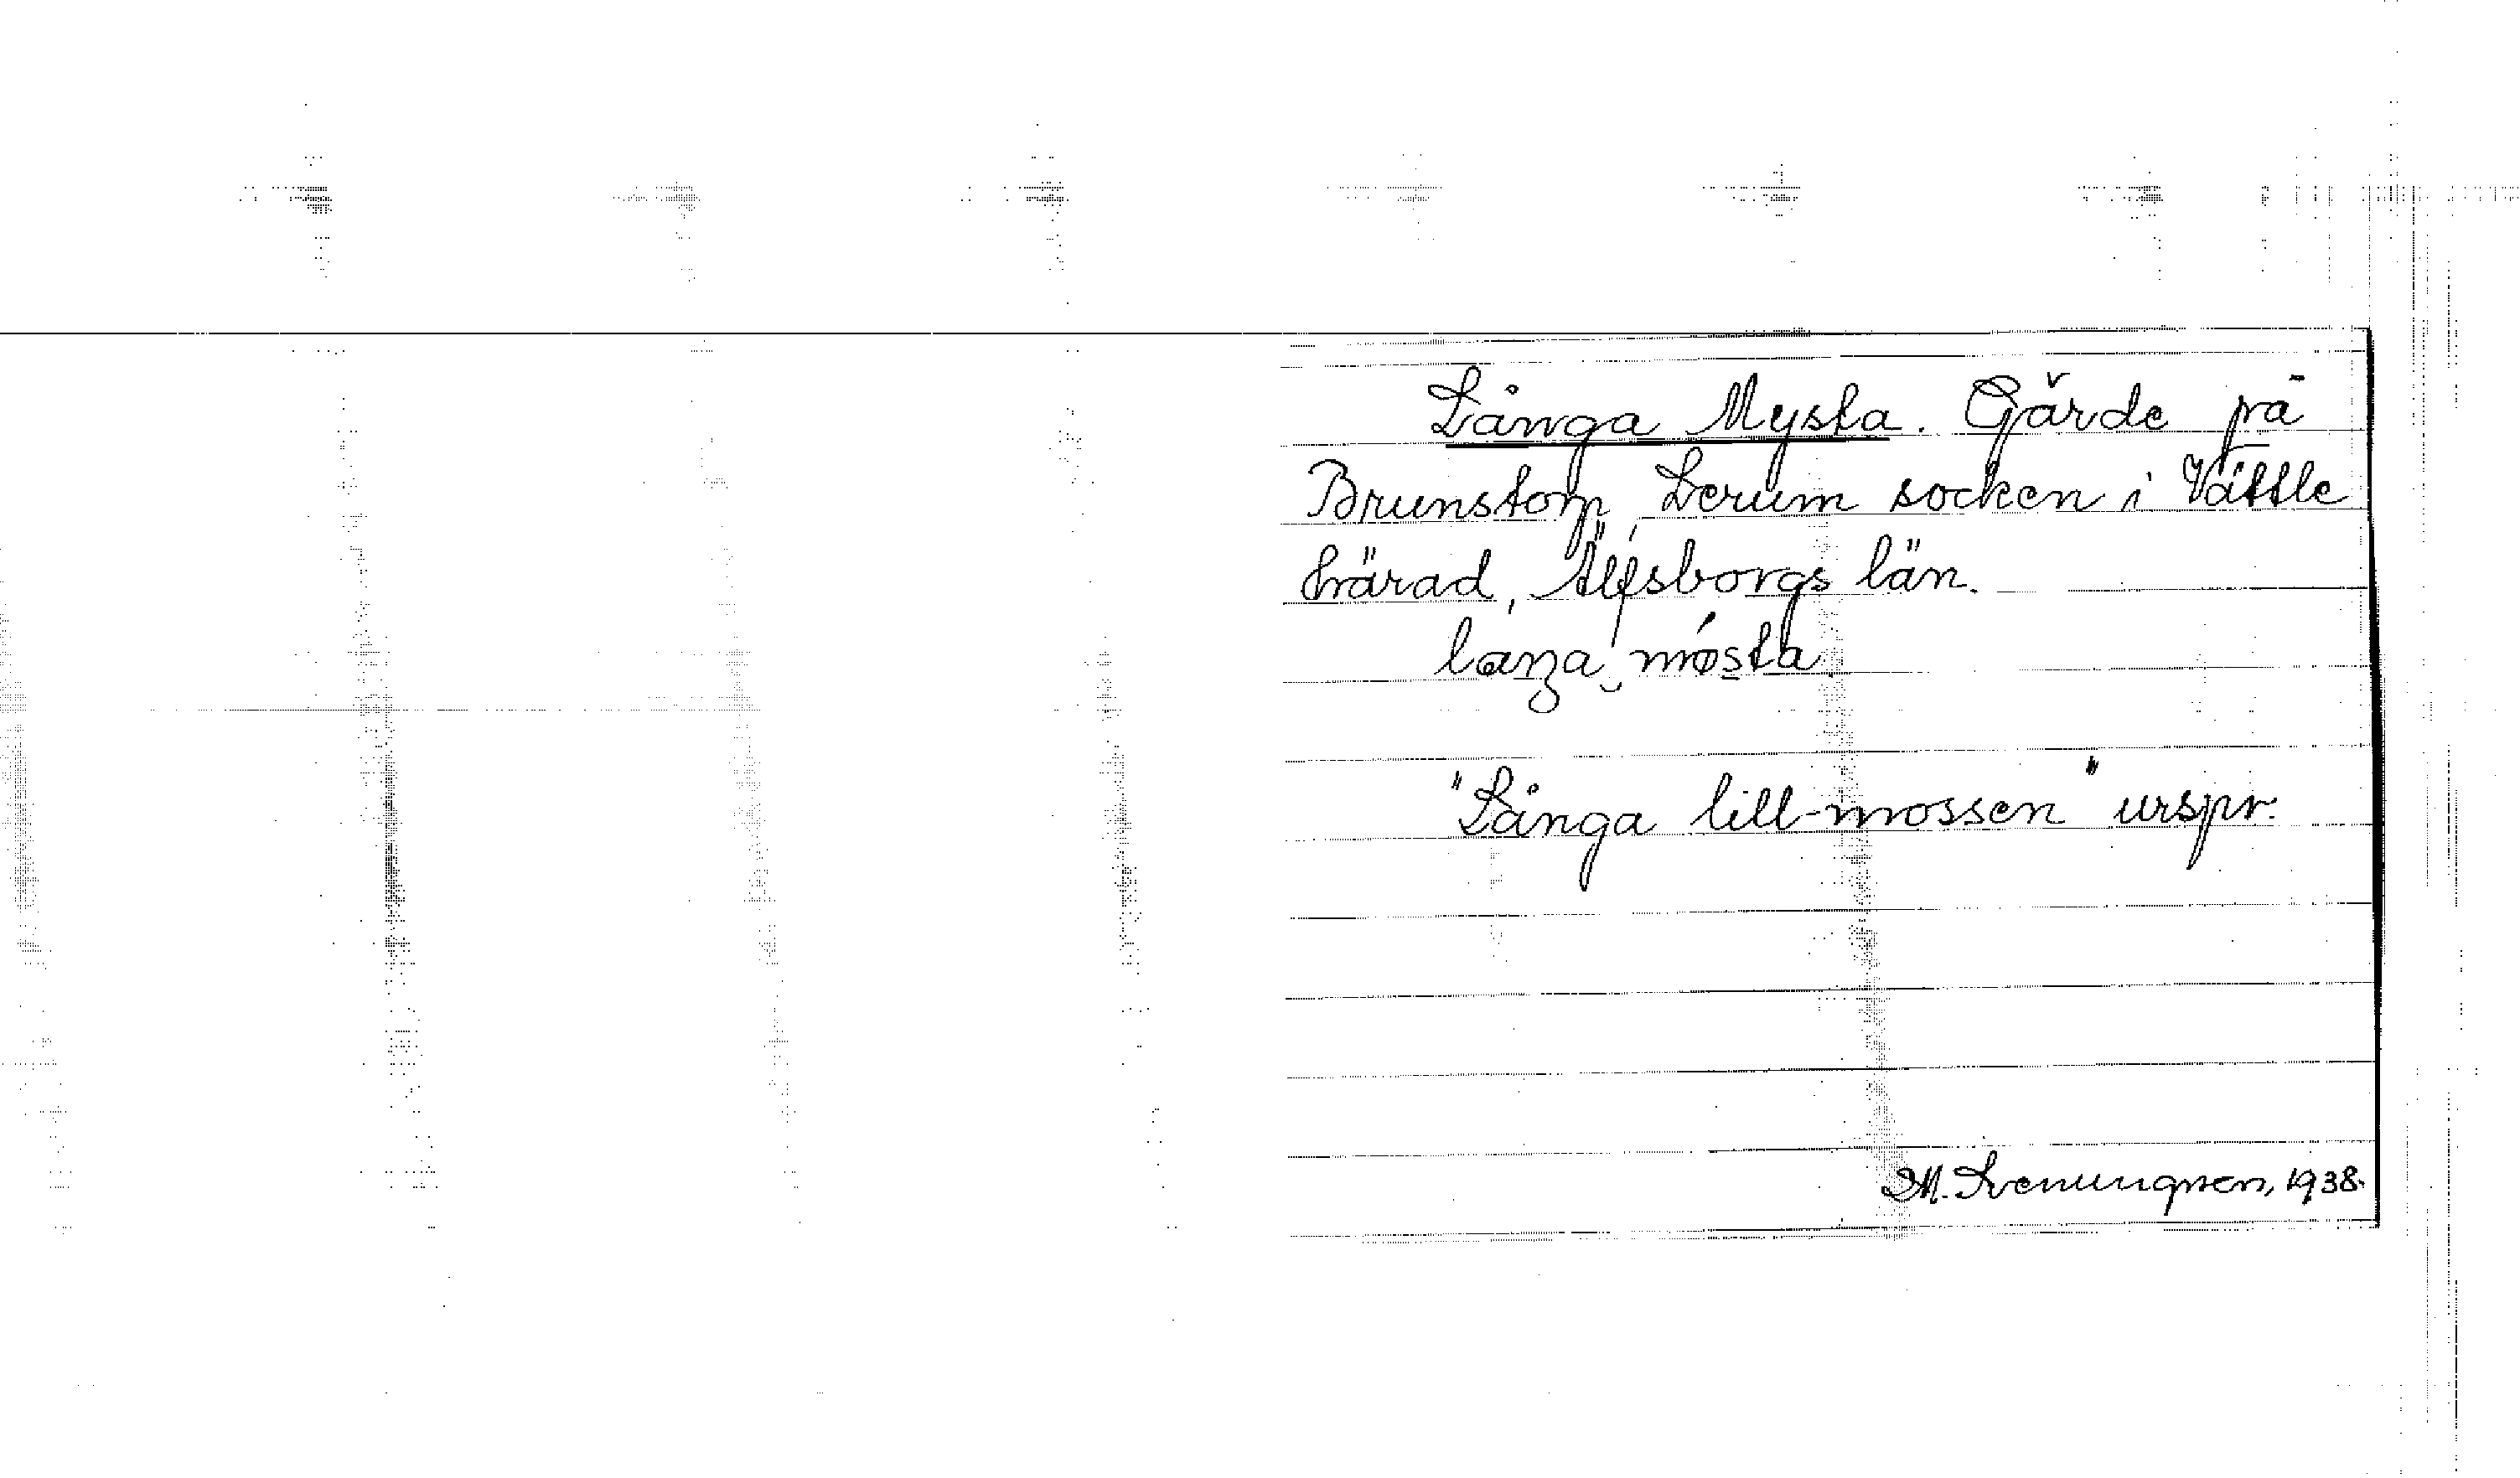 Långa Mysta. Gärde på
Brunstorp, Lerum socken i Vättle
härad, Älfsborgs län.
laŋa mø̀sta
"Långa lill-mossen" urspr.
M. Svenungsson, 1938.